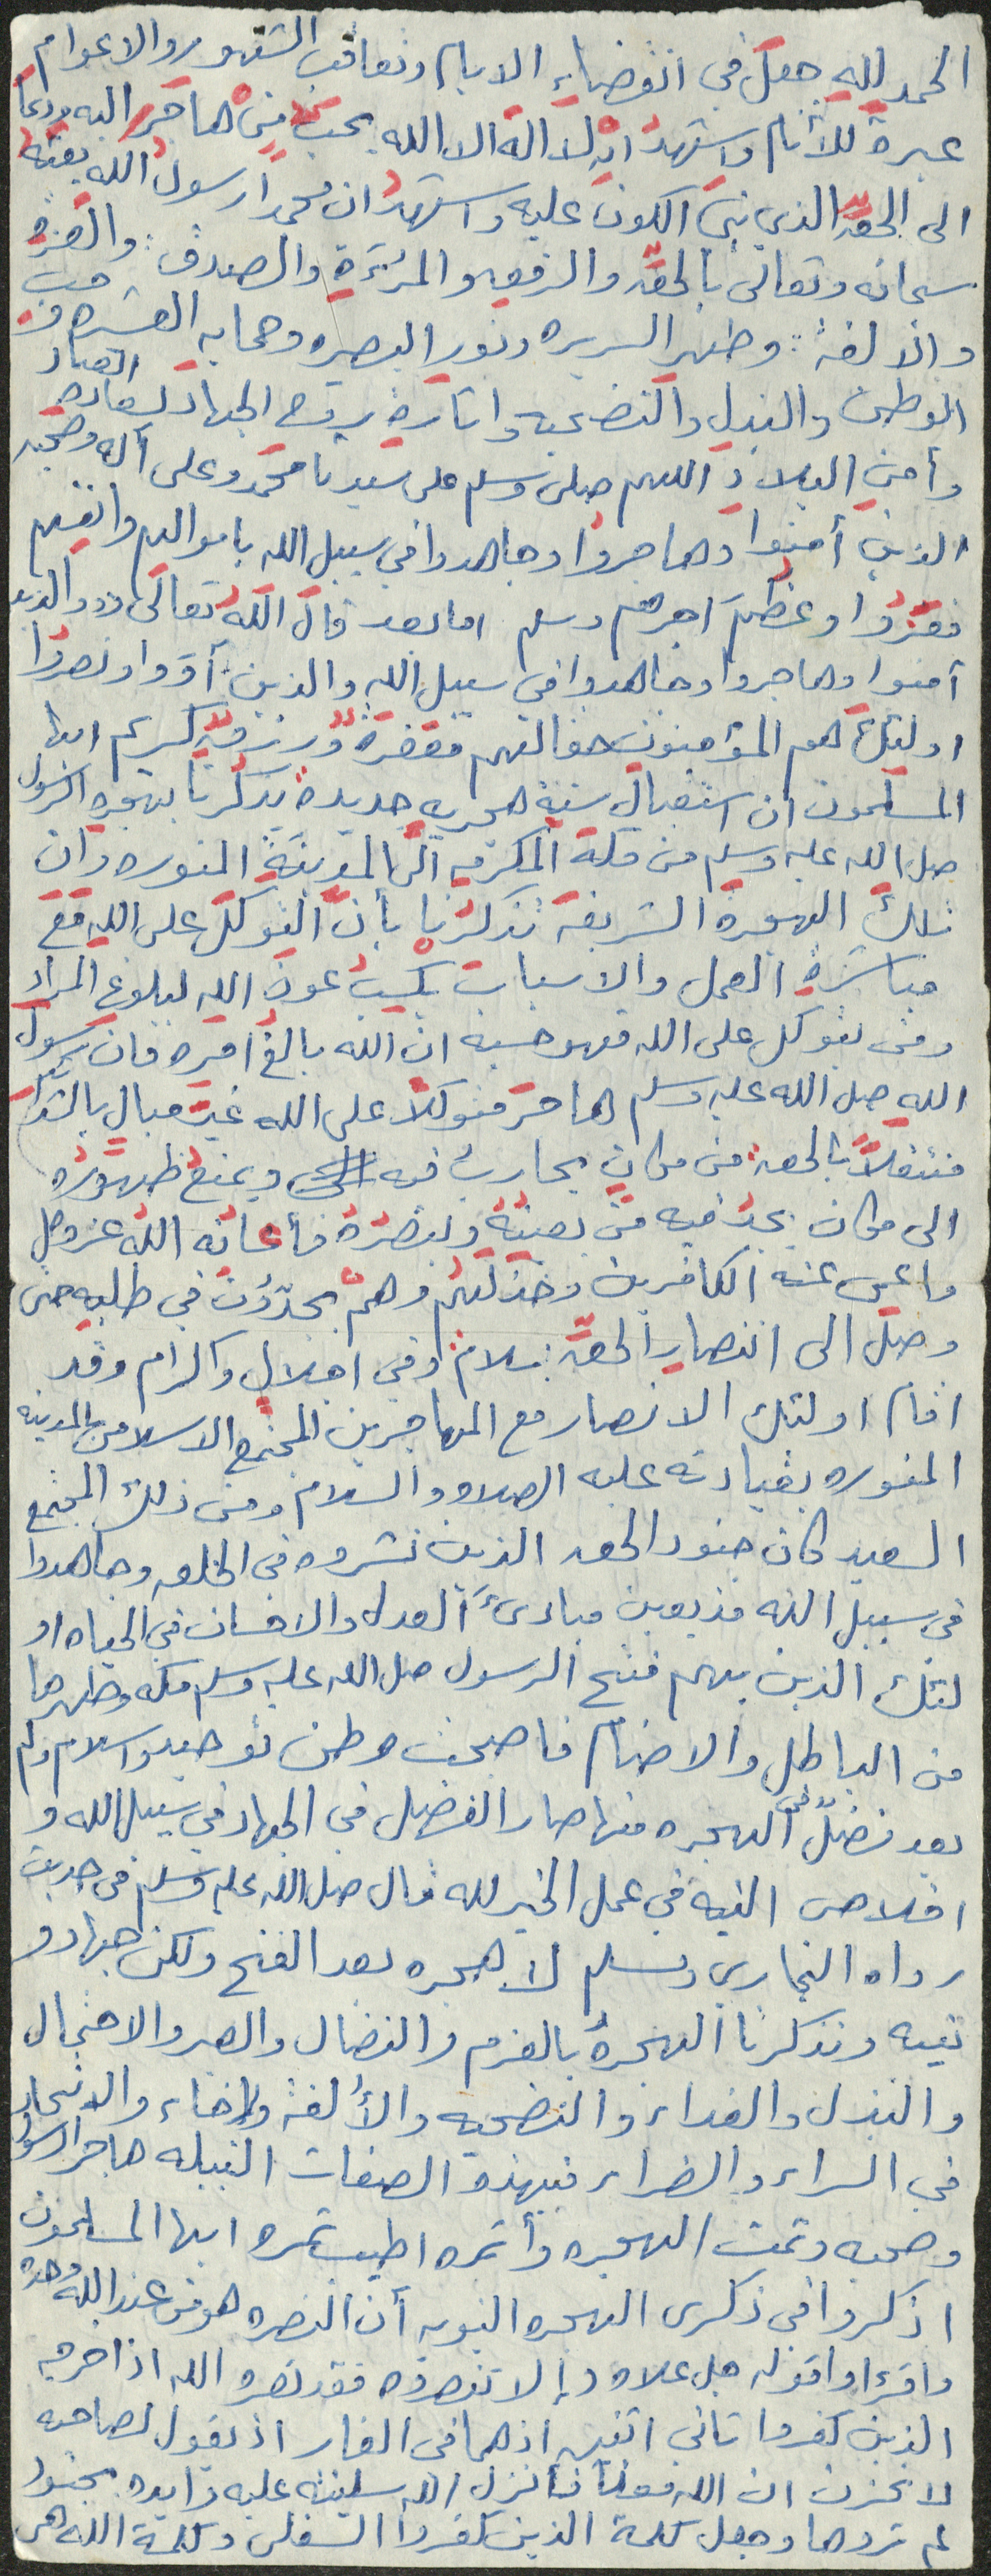 الحمد لله جعل في انقضاء الايام وتعاقب الشهور والاعوام
عبرة للأنام واشهد ان لا اله الا الله يحب من هاجر اليه ودعا
الى الحق الذي بنى الكون عليه واشهد ان محمدا رسول الله بعثه
سبحانه وتعالى بالحق والرفعه والمرؤة والصدق والعزة
والالفة وطهر السريره ونور البصيره وحمايه العشيره وحب
الوطن والبذل والتضحيه واثارة روح الجهاد لسعادة العباد
وأمن البلاد اللهم صلى وسلم على سيدنا محمد وعلى آله وصحبه
الذين أمنوا وهاجروا وجاهدوا في سبيل الله باموالهم وانفسهم
فعزوا وعظم اجرهم وسلم اما بعد قال الله تعالى والذين
أمنوا وهاجروا وجاهدوا في سبيل الله والذين أووا ونصروا
اولئك هم المؤمنون حقا لهم مغفرة ورزق كريم ايها
المسلمون ان استقبال سنة هجريه جديدة يذكرنا بهجره الرسول
صلى الله عليه وسلم من مكة المكرمه الى المدينة المنوره وان
تلك الهجرة الشريفة تذكرنا بأن التوكل على الله مع
مباشرة العمل والاسباب يكسب عون الله لبلوغ المراد
ومن يتوكل على الله فهو حسبه ان الله بالغ امره فان رسول
الله صلى الله عليه وسلم هاجر متوكلا على الله غير مبال بالشدائد
منتقلاً بالحق من مكان يحارب فيه ويمنع ظهوره
الى مكان يجد فيه من يعينه وينصره فأعانه الله عزوجل
واعمى عنه الكافرين وخذلهم وهم يجدّون في طلبه حتى
وصل الى انتصار الحق بسلام وفي اجلال واكرام وقد
اقام اولئك الانصار مع المهاجرين المجتمع الاسلامى بالمدينه
المنوره بقيادته عليه الصلاه والسلام ومن ذلك المجتمع
السعيد كان جنود الحق الذين نشروه في الخلق وجاهدوا
في سبيل الله مذيعين مبادئ العدل والاحسان في الحياه او
لئك الذين بهم فتح الرسول صلى الله عليه وسلم مكه وطهرها
من الباطل والاصنام فاصبحت وطن توحيد واسلام ولم
يعد فضلٌ في الهجره منها صار الفضل في الجهاد في سبيل الله و
اخلاص النيه في عمل الخير لله قال صلى الله عليه وسلم في حديث
رواه البخاري ومسلم لا هجره بعد الفتح ولكن جهاد و
نيه وتذكرنا الهجرة بالعزم والنضال والصبر والاحتمال
والبذل والفداء والتضحيه والألفة والإخاء والاتحاد
في السراء والضراء فبهذه الصفات النبيله هاجر الرسول
وصحبه وتمت الهجره وأثمره اطيب ثمره ايها المسلمون
اذكروا في ذكرى الهجره النبويه أن النصره هو من عند الله وحده
واقرءا واقوله جل علاه إلا تنصروه فقد نصره الله اذ اخرجه
الذين كفروا ثاني اثنين اذ هما في الغار اذ يقول لصاحبه
لا تحزن ان الله معنا فأنزل الله سكينته عليه وايده بجنود
لم تروها وجعل كلمة الذين كفروا السفلى وكلمة الله هى